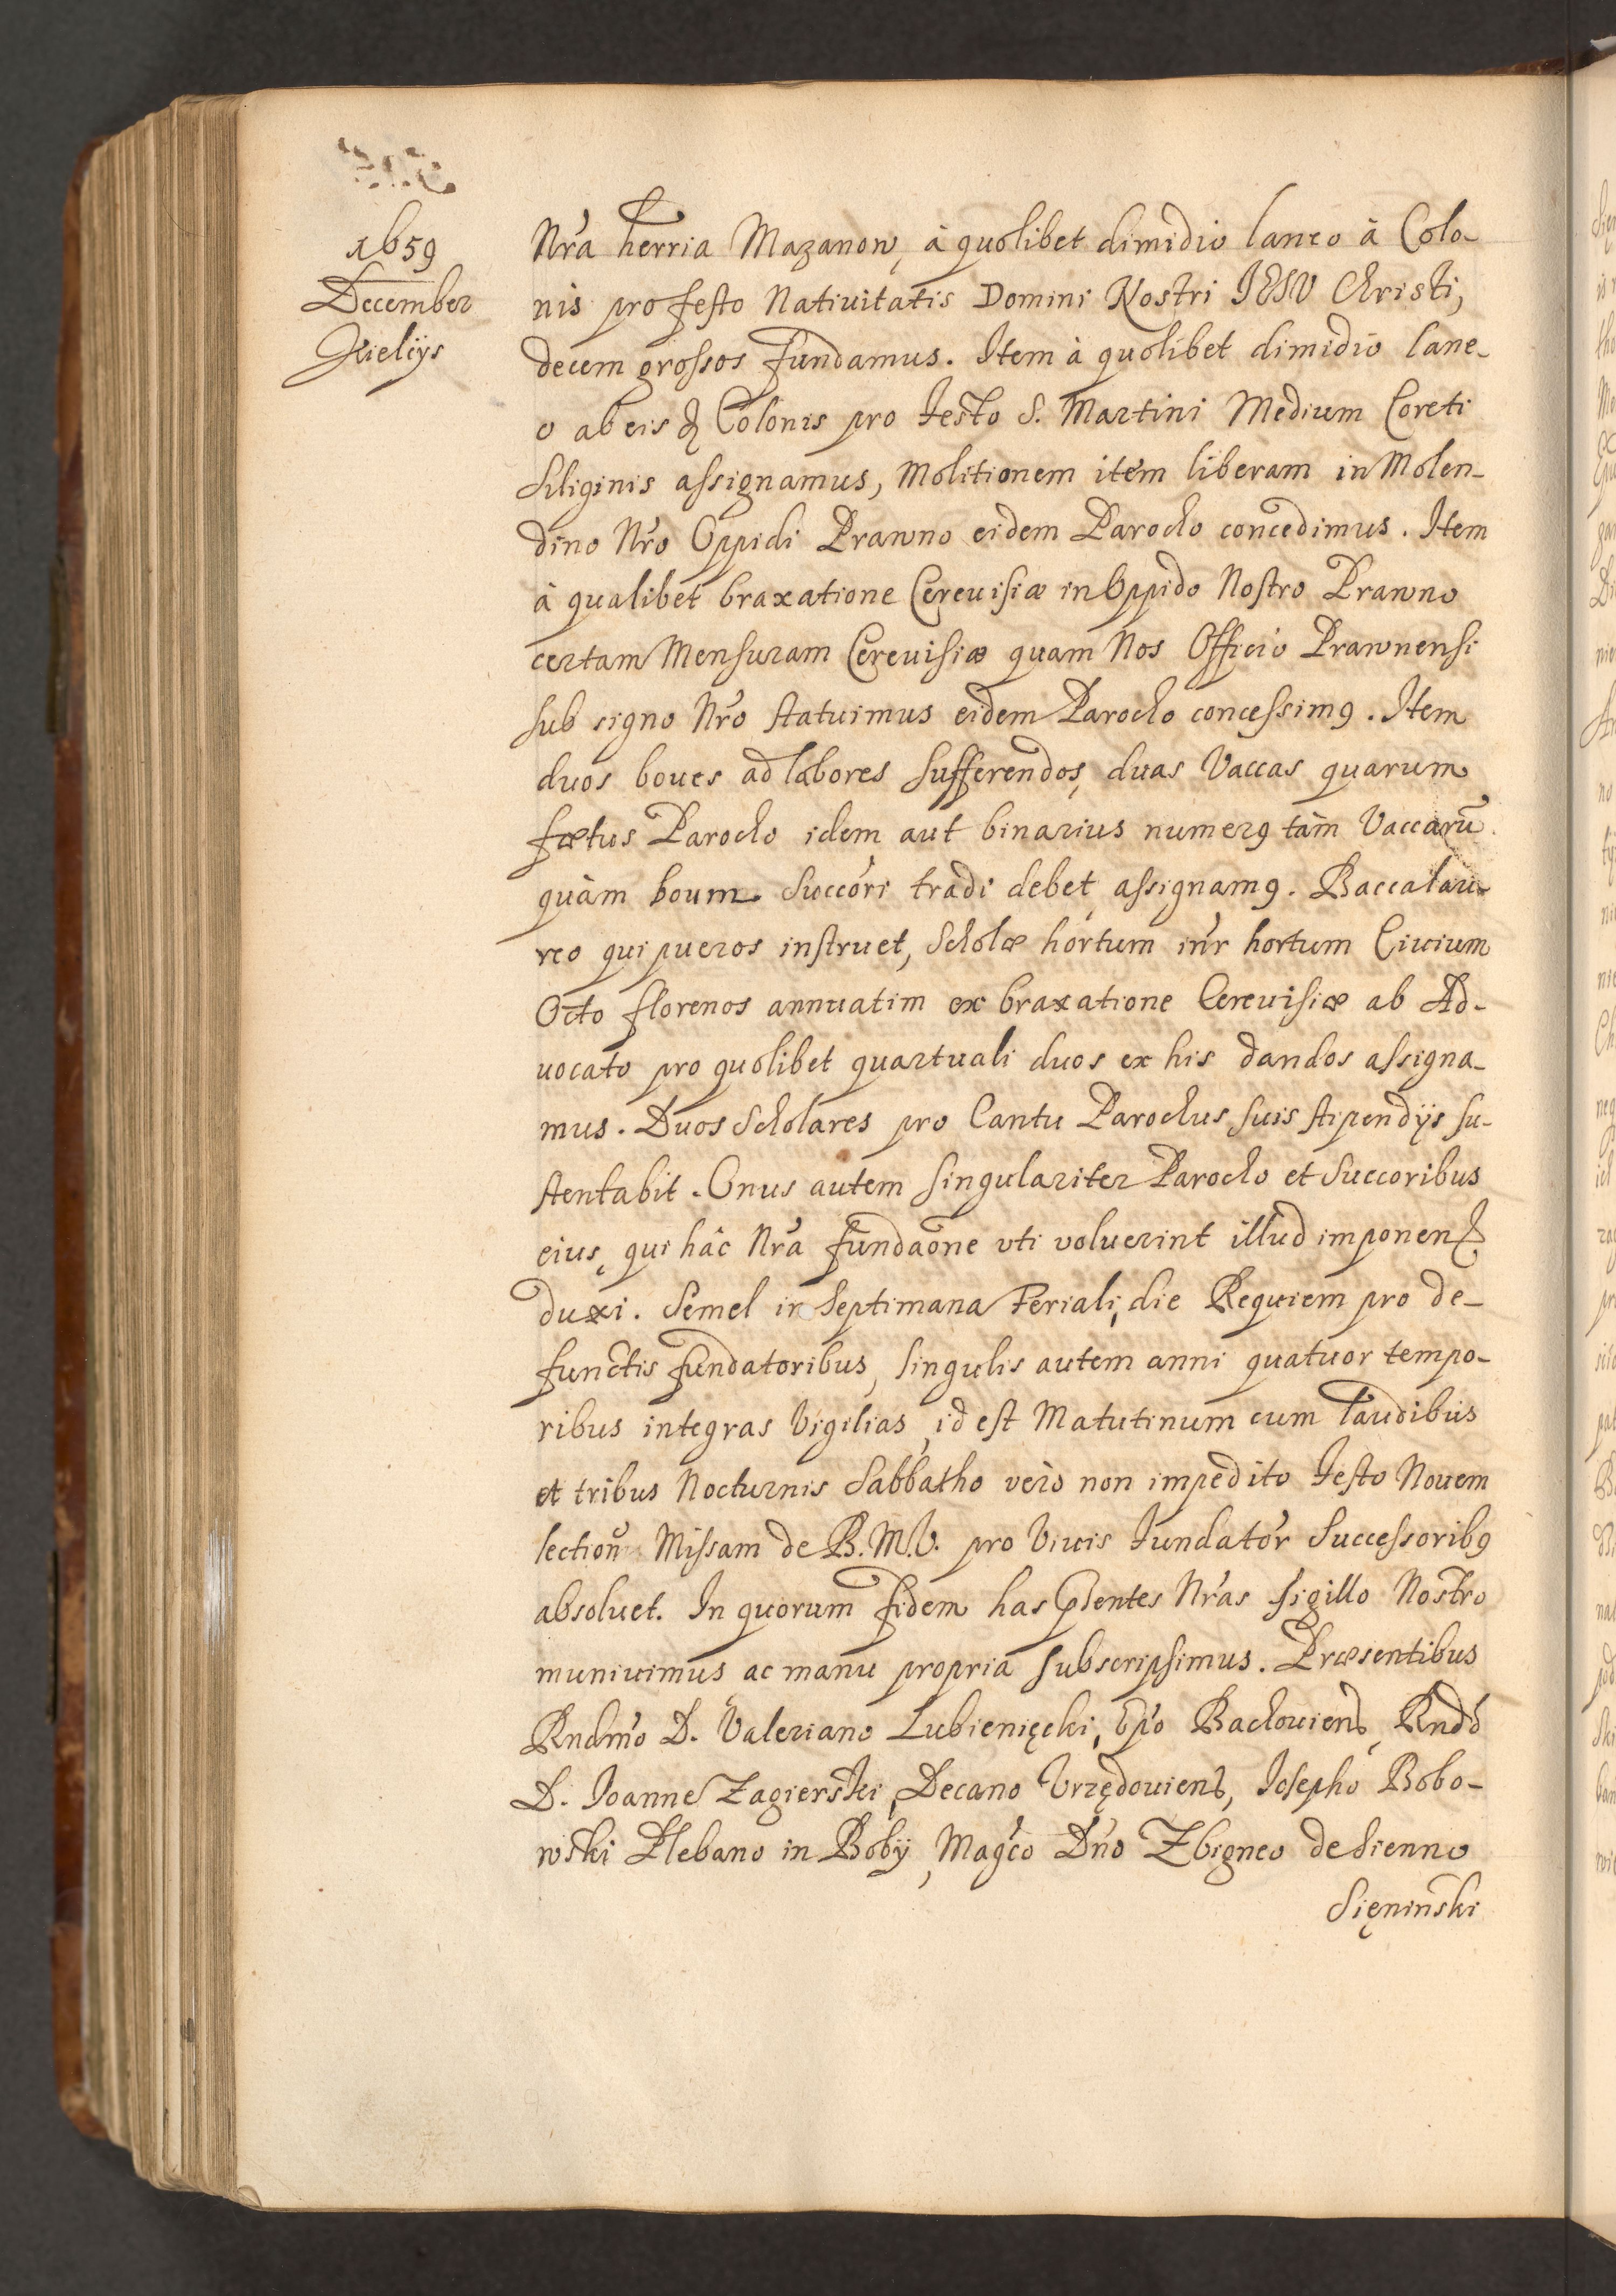 1659
December
Kielijs
Nr̃a herria Mazanow, à quolibet dimidio laneo à Colo-
nis pro festo Nativitatis Domini Nostri IESV Christi,
decem grossos fundamus. Item à quolibet dimidio lane-
o ab eisd Colonis pro Festo S. Martini Medium Coreti
Siliginis assignamus, Molitionem item liberam in Molen-
dino Nr̃o Oppidi Prawno eidem Parocho concedimus. Item
à qualibet braxatione Cereuisiæ in Oppido Nostro Prawno
certam Mensuram Cereuisiæ quam Nos Officio Prawnensi
sub signo Nr̃o statuimus eidem Parocho concessimꝰ. Item
duos boues ad labores sufferendos, duas Vaccas quarum
fœtus Parocho idem aut binarius numerꝰ tàm Vaccarũ
quàm boum Succõri tradi debet, assignamꝰ. Baccalau-
reo qui pueros instruet, Scholæ hortum inr̃ hortum Ciuium
Octo florenos annuatim ex braxatione Cereuisiæ ab Ad-
uocato pro quolibet quartuali duos ex his dandos assigna-
mus. Duos Scholares pro Cantu Parochus suis stipendijs su-
stentabit. Onus autem singulariter Parocho et Succoribus
eius, qui hâc Nr̃a fundaõne vti voluerint illud imponend
duxi. Semel in Septimana Feriali, die Requiem pro de-
functis fundatoribus, singulis autem anni quatuor tempo-
ribus integras Vigilias, id est Matutinum cum laudibus
et tribus Nocturnis Sabbatho verò non impedito Festo Nouem
lectioñ Missam de B.M.V. pro Viuis Fundator̃ Successoribꝰ
absoluet. In quorum fidem has p̃ntes Nr̃as sigillo Nostro
muniuimus ac manu propria subscripsimus. Præsentibus
Rndmõ D. Valeriano Lubienięcki, Ep̃o Bachouiens, Rndõ
D. Ioanne Zagierski, Decano Vrzędouiens, Iosepho Bobo-
wski Plebano in Boby, Magc̃o Dñο Zbigneo de Sienno
Sięniński